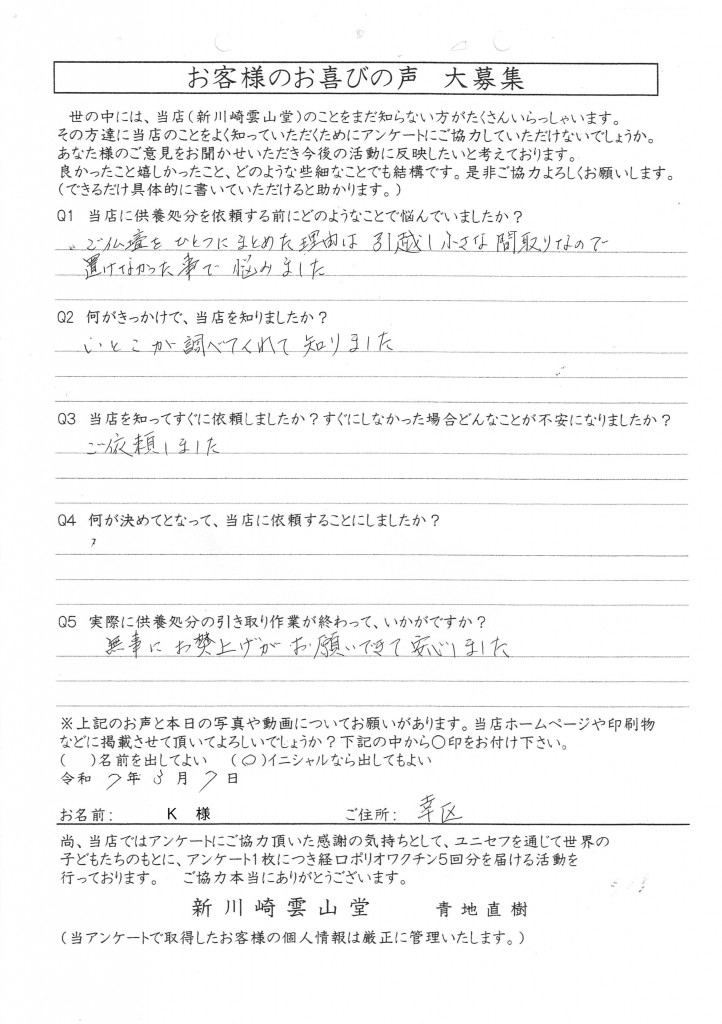 お客様のお喜びの声 大募集
世の中には、当店(新川崎雲山堂)のことをまだ知らない方がたくさんいらっしゃいます。
その方達に当店のことをよく知っていただくためにアンケートにご協力していただけないでしょうか。
あなた様のご意見をお聞かせいただき今後の活動に反映したいと考えております。
良かったこと嬉しかったこと、どのような些細なことでも結構です。是非ご協力よろしくお願いします。
(できるだけ具体的に書いていただけると助かります。)
Q1 当店に供養処分を依頼する前にどのようなことで悩んでいましたか?
ご仏壇をひとつにまとめた理由は引越し小さな間取りなので
置けなかった事で悩みました
Q2 何がきっかけで、当店を知りましたか?
いとこが調べてくれて知りました
Q3 当店を知ってすぐに依頼しましたか?すぐにしなかった場合どんなことが不安になりましたか?
ご依頼しました
Q4 何が決めてとなって、当店に依頼することにしましたか?
Q5 実際に供養処分の引き取り作業が終わって、いかがですか?
無事にお焚上げがお願いできて安心しました
※上記のお声と本日の写真や動画についてお願いがあります。当店ホームページや印刷物
などに掲載させて頂いてよろしいでしょうか?下記の中から〇印をお付け下さい。
( )名前を出してよい (〇)イニシャルなら出してもよい
令和 7年 3月 7日
お名前: K 様 ご住所: 幸区
尚、当店ではアンケートにご協力頂いた感謝の気持ちとして、ユニセフを通じて世界の
子どもたちのもとに、アンケート1枚につき経口ポリオワクチン5回分を届ける活動を
行っております。 ご協力本当にありがとうございます。
新川崎雲山堂 青地直樹
(当アンケートで取得したお客様の個人情報は厳正に管理いたします。)